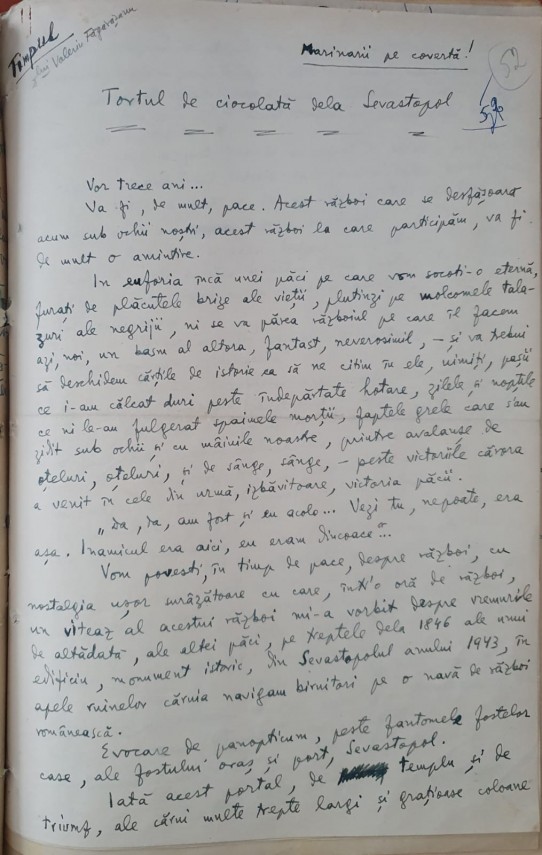 Timpul
lui Valeriu
Marinarii pe covertă!
52
Tortul de ciocolată dela Sevastopol
Vor trece ani...
Va fi, de mult, pace. Acest război care se desfășoară
acum sub ochii noștri, acest război la care participăm, va fi
de mult o amintire.
In euforia încă unei păci pe care vom socoti-o eternă,
furați de plăcutele brize ale vieții, plutinzi pe molcomele tala-
zuri ale negrijii, ni se va părea războiul pe care îl facem
azi, noi, un basm al altora, fantast, neverosimil, – și va trebui
să deschidem cărțile de istorie ca să ne citim în ele, uimiți, pașii
ce i-am călcat duri peste îndepărtate hotare, zilele și nopțile
ce ni le-au fulgerat spaimele morții, faptele grele care s'au
zidit sub ochii și cu mâinile noastre, printre avalanșe de
oțeluri, oțeluri, și de sânge, sânge, – peste victoriile cărora
a venit în cele din urmă, izbăvitoare, victoria păcii.
„Da, da, am fost și eu acolo... Vezi tu, nepoate, era
așa. Inamicul era aici, eu eram dincoace"...
Vom povesti, în timp de pace, despre război, cu
nostalgia ușor surâzătoare cu care, într'o oră de război,
un viteaz al acestui război mi-a vorbit despre vremurile
de altădată, ale altei păci, pe treptele dela 1846 ale unui
edificiu, monument istoric, din Sevastopolul anului 1943, în
apele ruinelor căruia navigam biruitori pe o navă de război
românească.
Evocare de panopticum, peste fantomele fostelor
case, ale fostului oraș și port, Sevastopol.
Iată acest portal, de templu și de
triumf, ale cărui multe trepte largi și grațioase coloane